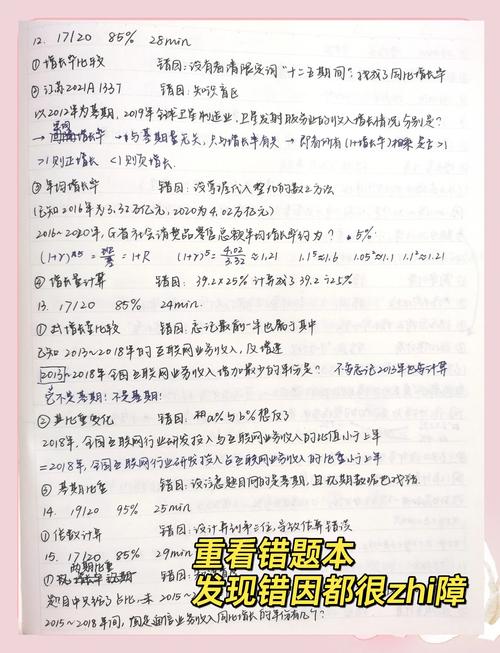 12. 17/20 85% 28min
①增长率比较 错因：没有看清限定词“十二五期间”，找成了同比增长率
②江苏2021A 133T 错因：知识盲区
以2012年为基期，2019年全球卫星制造业，卫星发射服务业的收入增长情况分别是？
→ 增长率 → 与基期量无关，只与增长率有关 → 即看所有(1+增长率)相乘是否>1
>1则正增长 <1则负增长.
③年均增长率 错因：没掌握代入整10的数的方法
(已知2016年为3.32万亿元，2020为4.02万亿元)
2016~2020年，G省社会消费品零售总额年均增长率约为？ 5%
(1+r)ⁿ=现/基=1+R (1+r)⁴=4.02/3.32≈1.21 1.1⁵≈1.6 1.05²≈1.1 1.1²≈1.21
④增长量计算 错因：39.2×25%计算成了39.2÷25%
13. 17/20 85% 24min.
① 增长量比较 错因：忘记最前一年也属于其中
已知2013~2018年的互联网业务收入，及增速
2013~2018年全国互联网业务收入增加最少的年份是？ 不要忘记2013年也要计算
它不是基期！不是基期！
②比重变化 错因：把a%与b%想反了
2018年，全国互联网行业研发投入与互联网业务收入的比值小于上年
=2018年，全国互联网行业研发投入占互联网业务收入的比重小于上年
③基期比重 错因：没注意题目问的是基期，且现期数据也找错
14. 19/20 95% 25min
①倍数计算 错因：没计算到第三位，导致估算错误
15. 17/20 85% 29min
①两期比重
题目中只给了占比，未 2015~
2015~2018年间，固定通信业务收入同比增长的年份有几个？
重看错题本
发现错因都很zhi障